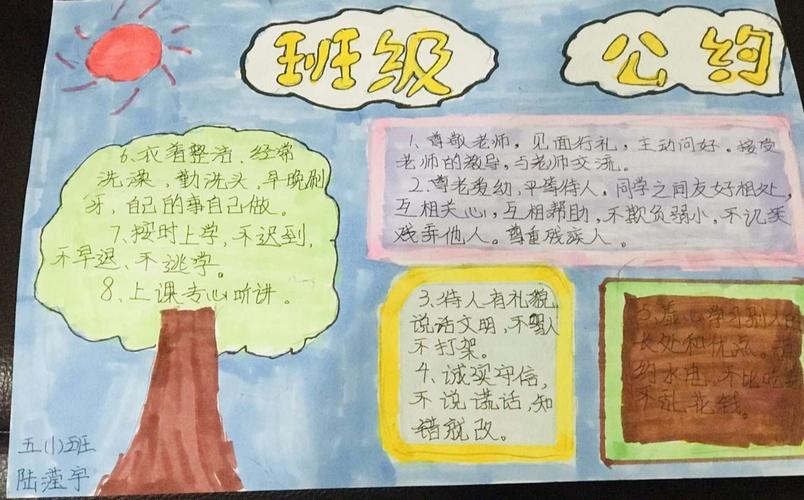 班级 公约
1、尊敬老师，见面行礼，主动问好。接受
老师的教导，与老师交流。
2、尊老爱幼，平等待人。同学之间友好相处，
互相关心，互相帮助，不欺负弱小，不讥笑
戏弄他人。尊重残疾人。
3、待人有礼貌，
说话文明，不骂人
不打架。
4、诚实守信，
不说谎话，知
错就改。
5、虚心学习别人的
长处和优点。
约水电，不比吃
不乱花钱。
6、衣着整洁、经常
洗澡，勤洗头，早晚刷
牙，自己的事自己做。
7、按时上学，不迟到，
不早退、不逃学。
8、上课专心听讲。
五(1)班
陆滢宇